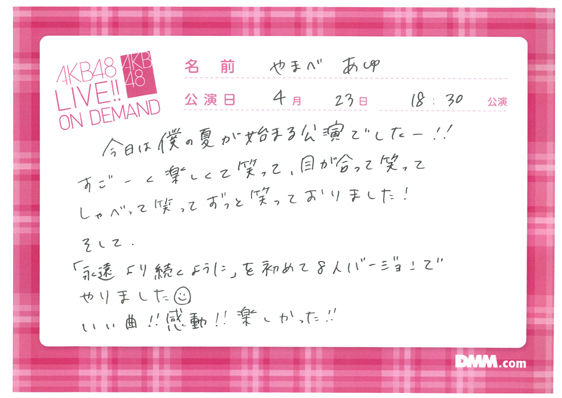 AKB48
LIVE!!
ON DEMAND
AKB
48
名前 やまべ あゆ
公演日 4月 23日 18:30 公演
今日は僕の夏が始まる公演でしたー!!
すごーく楽しくて笑って、目が合って笑って
しゃべって笑ってずっと笑っておりました!
そして、
「永遠より続くように」を初めて8人バージョンで
やりました☺
いい曲!!感動!!楽しかった!!
DMM.com